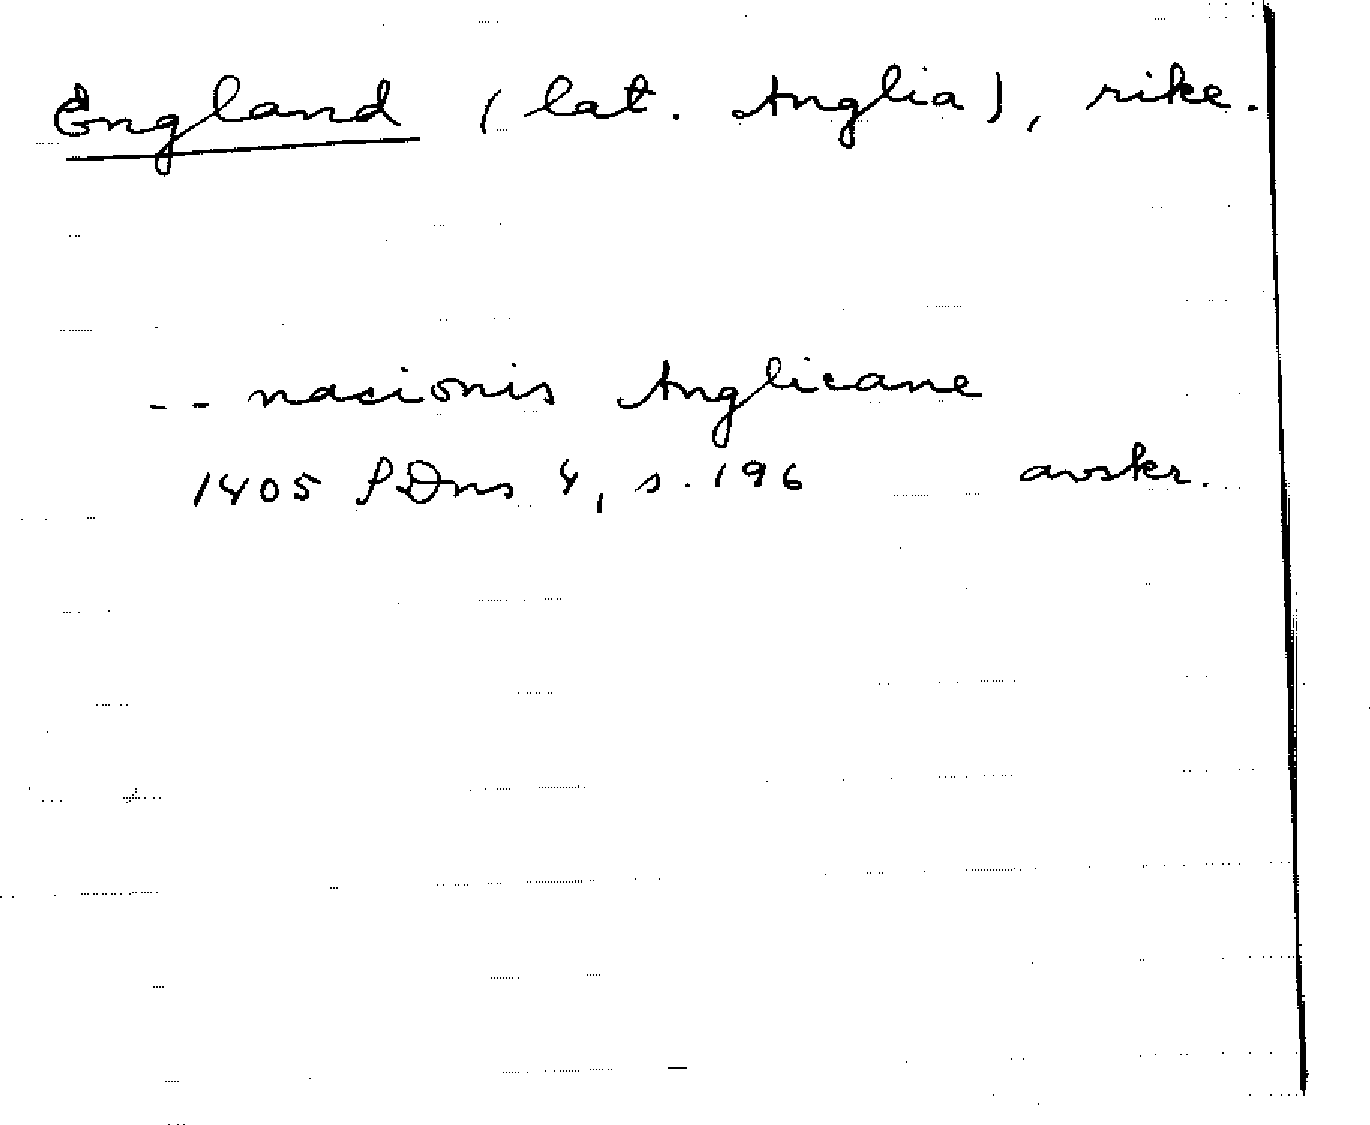 England (lat. Anglia), rike.
-- nacionis Anglicane
1405 SDns 4, s. 196 avskr.